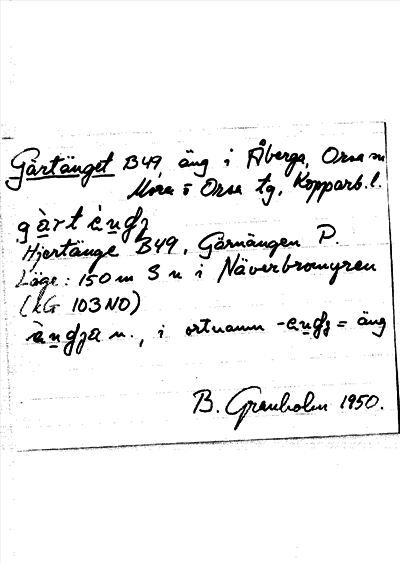 Gärtänget B49, äng i Åberga, Orsa sn
Mora o Orsa tg, Kopparb. l.
gàrt èndʒ
Hjertänge B49, Gärnängen P.
Läge: 150 m S n i Näverbromyren
(kG 103 NO)
àndʒa n., i ortnamn -endʒ = äng
B. Granholm 1950.